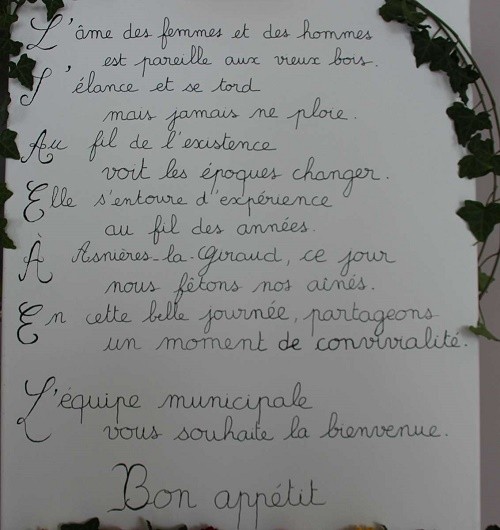 L'âme des femmes et des hommes
est pareille aux vieux bois.
S'élance et se tord
mais jamais ne ploie.
Au fil de l'existence
voit les époques changer.
Elle s'entoure d'expérience
au fil des années.
À Asnières-la-Giraud, ce jour
nous fêtons nos aînés.
En cette belle journée, partageons
un moment de convivialité.
L'équipe municipale
vous souhaite la bienvenue.
Bon appétit